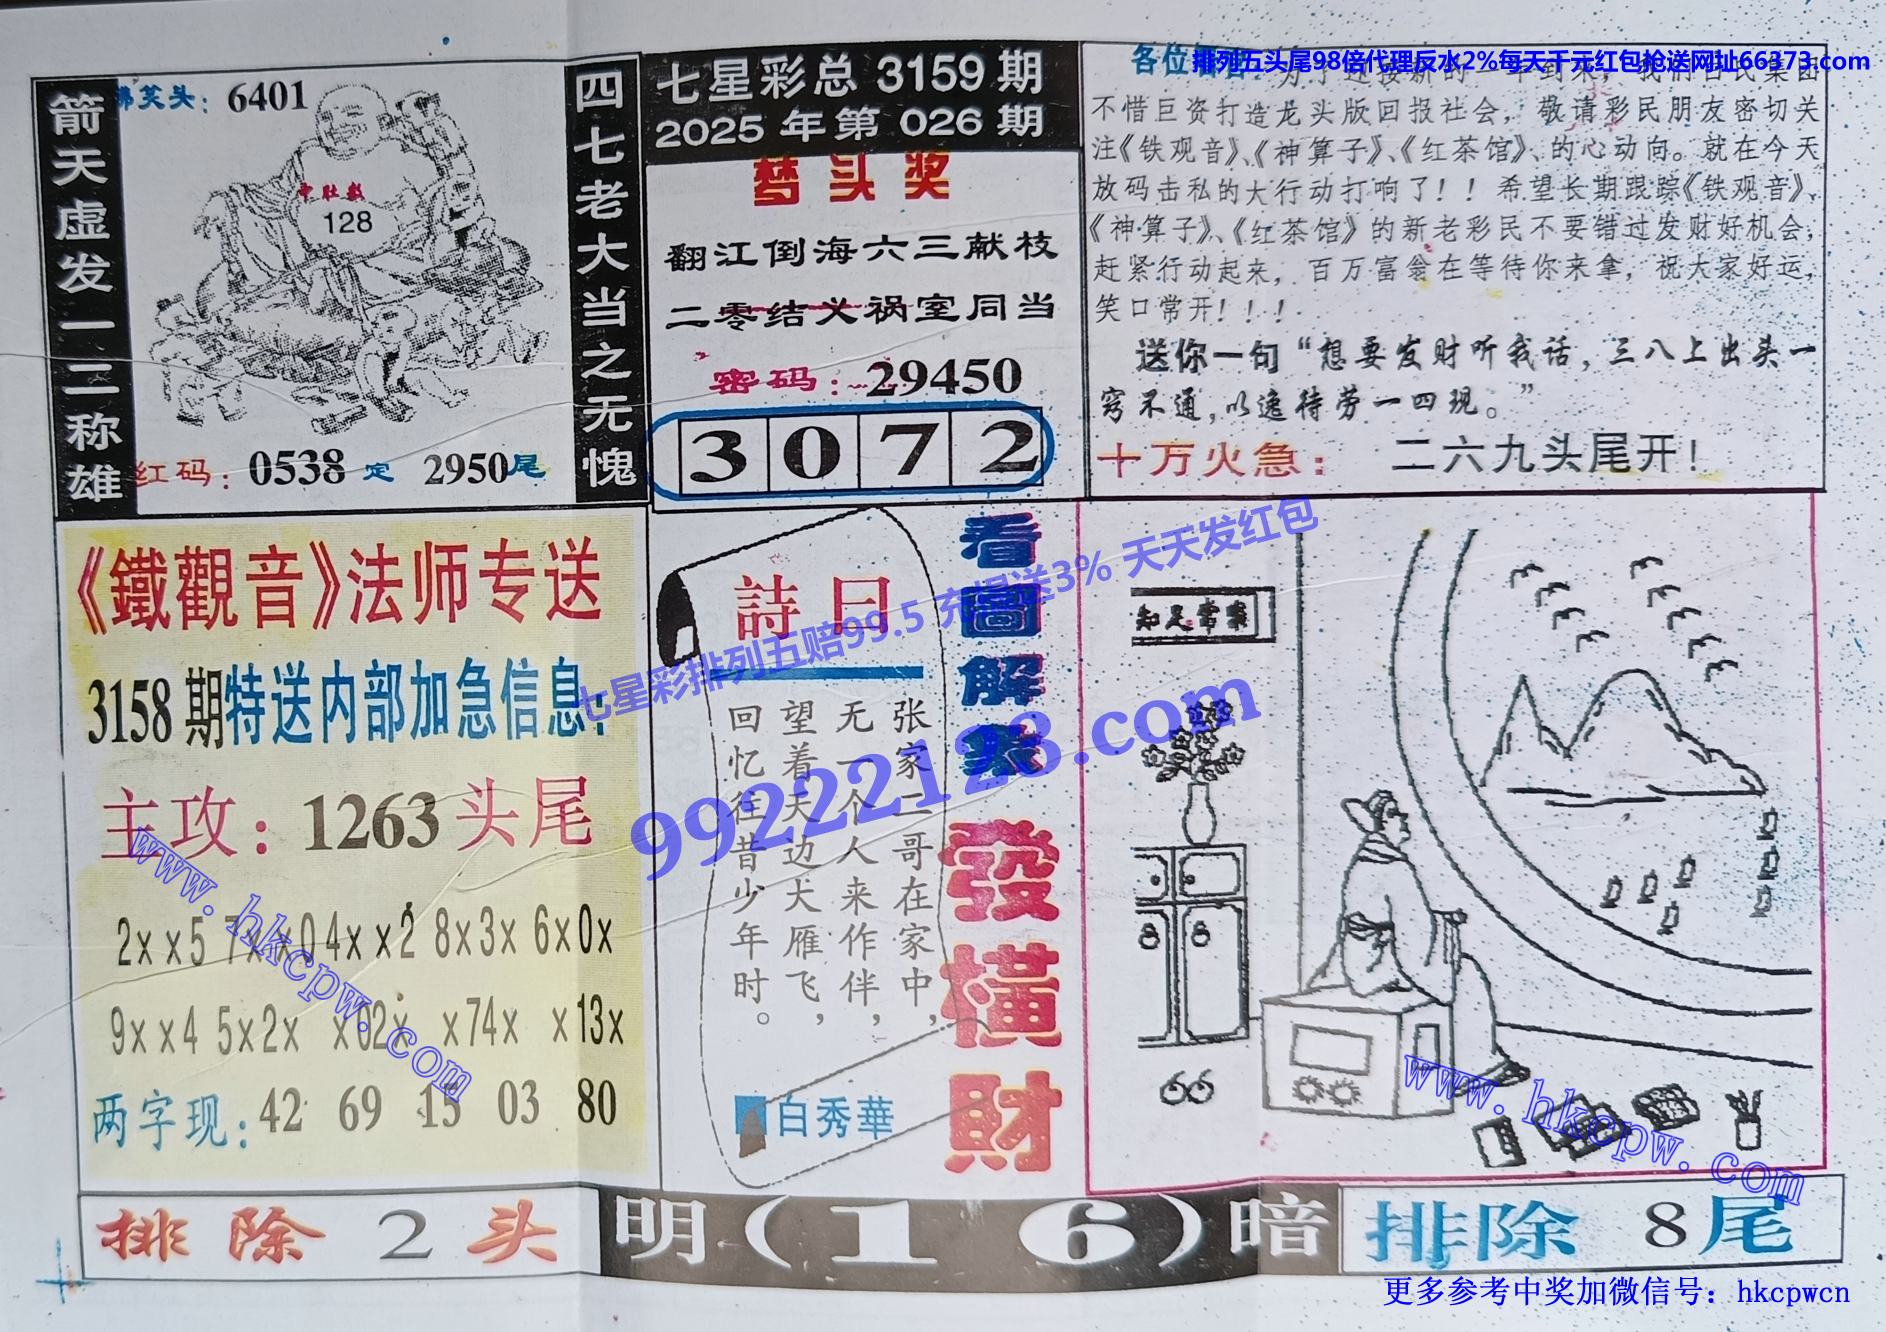 排列五头尾98倍代理反水2%每天千元红包抢送网址66373.com
箭天虚发一二称雄
佛笑头：6401
中肚数
128
红码：0538定 2950尾
四七老大当之无愧
七星彩总 3159 期
2025 年第 026 期
梦头奖
翻江倒海六三献枝
二零结义祸室同当
密码：29450
3072
各位
不惜巨资打造龙头版回报社会，敬请彩民朋友密切关
注《铁观音》、《神算子》、《红茶馆》、的心动向。就在今天
放码击私的大行动打响了！！希望长期跟踪《铁观音》、
《神算子》、《红茶馆》的新老彩民不要错过发财好机会，
赶紧行动起来，百万富翁在等待你来拿，祝大家好运，
笑口常开！！！
送你一句“想要发财听我话，三八上出头一
窍不通，以逸待劳一四现。”
十万火急：二六九头尾开！
《鐵觀音》法师专送
3158 期特送内部加急信息：
主攻：1263 头尾
2xx5 7xx0 4xx2 8x3x 6x0x
9xx4 5x2x x02x x74x x13x
两字现：42 69 15 03 80
詩曰
张家二哥在家中，
无一个人来作伴，
望着天边大雁飞，
回忆往昔少年时。
白秀華
看圖解
發橫財
知足常乐
七星彩排列五赔99.5 充值送3% 天天发红包
99222128.com
www.hkcpw.com
www.hkcpw.com
排除 2 头
明(1 6)暗
排除 8尾
更多参考中奖加微信号：hkcpwcn